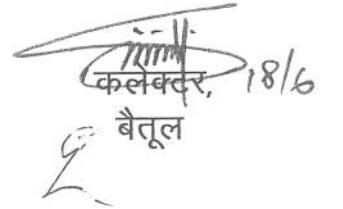 कलेक्टर, 18/6
बैतूल